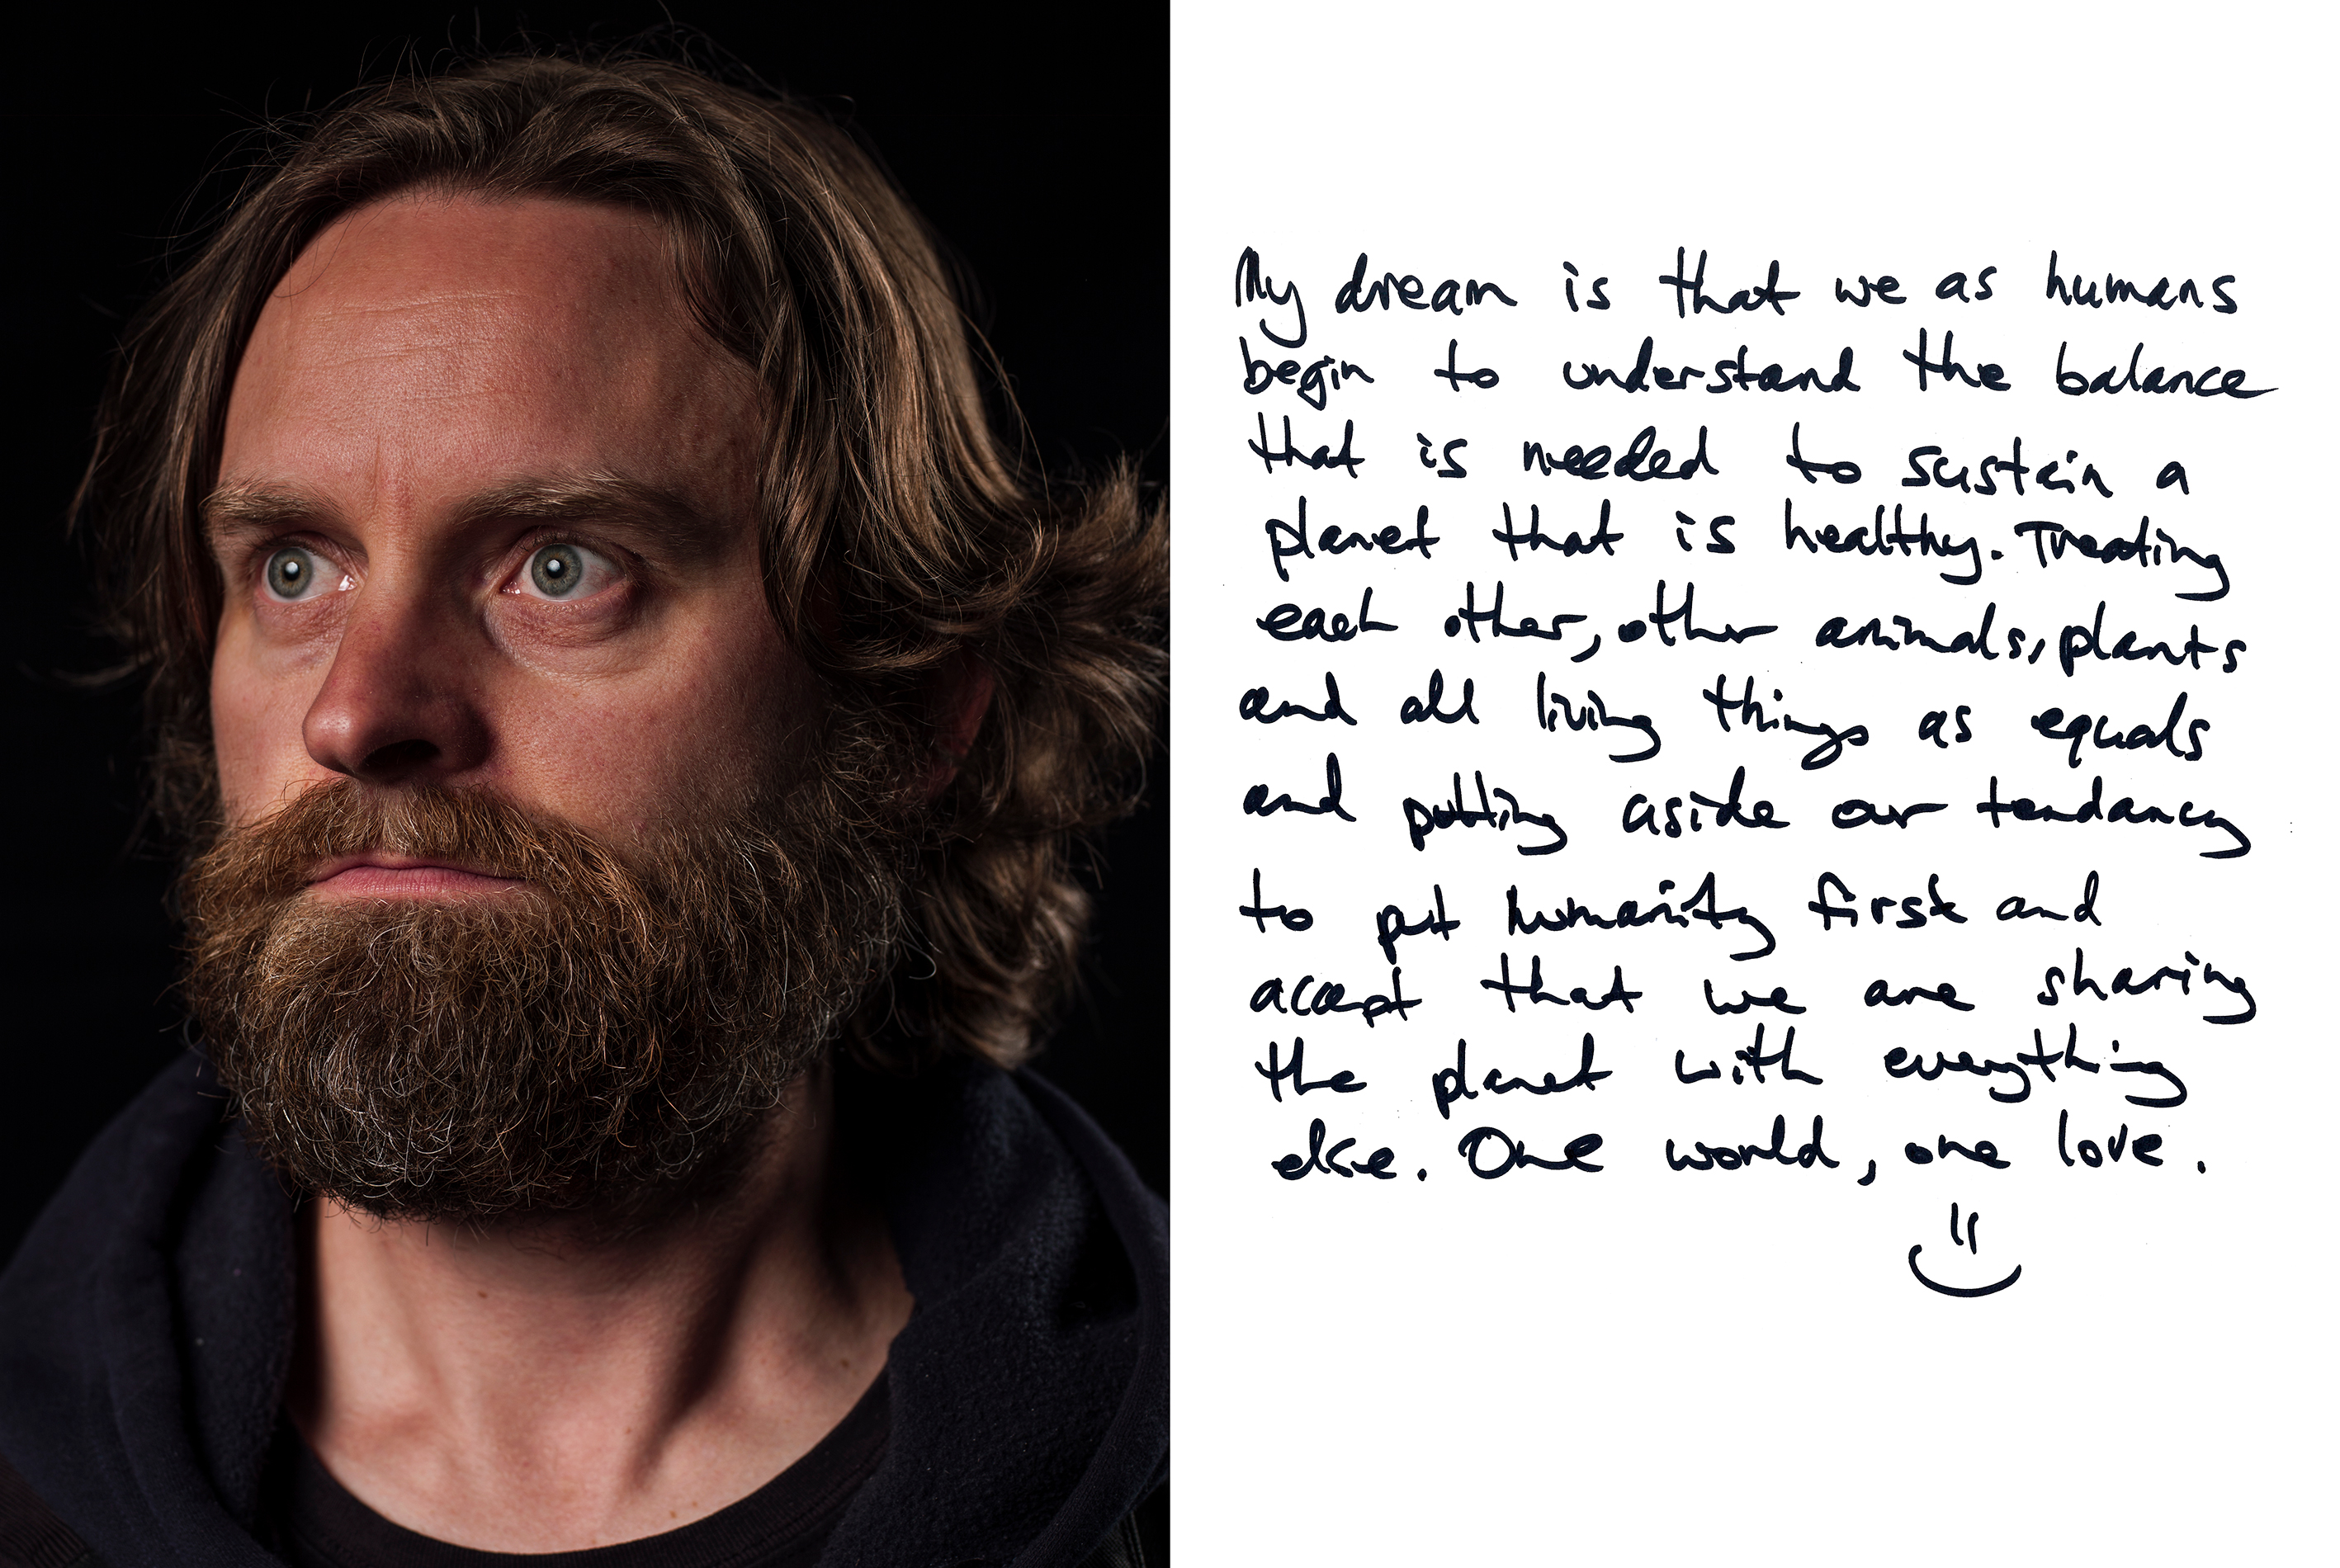 My dream is that we as humans
begin to understand the balance
that is needed to sustain a
planet that is healthy. Treating
each other, other animals, plants
and all living things as equals
and putting aside our tendancy
to put humanity first and
accept that we are sharing
the planet with everything
else. One world, one love.